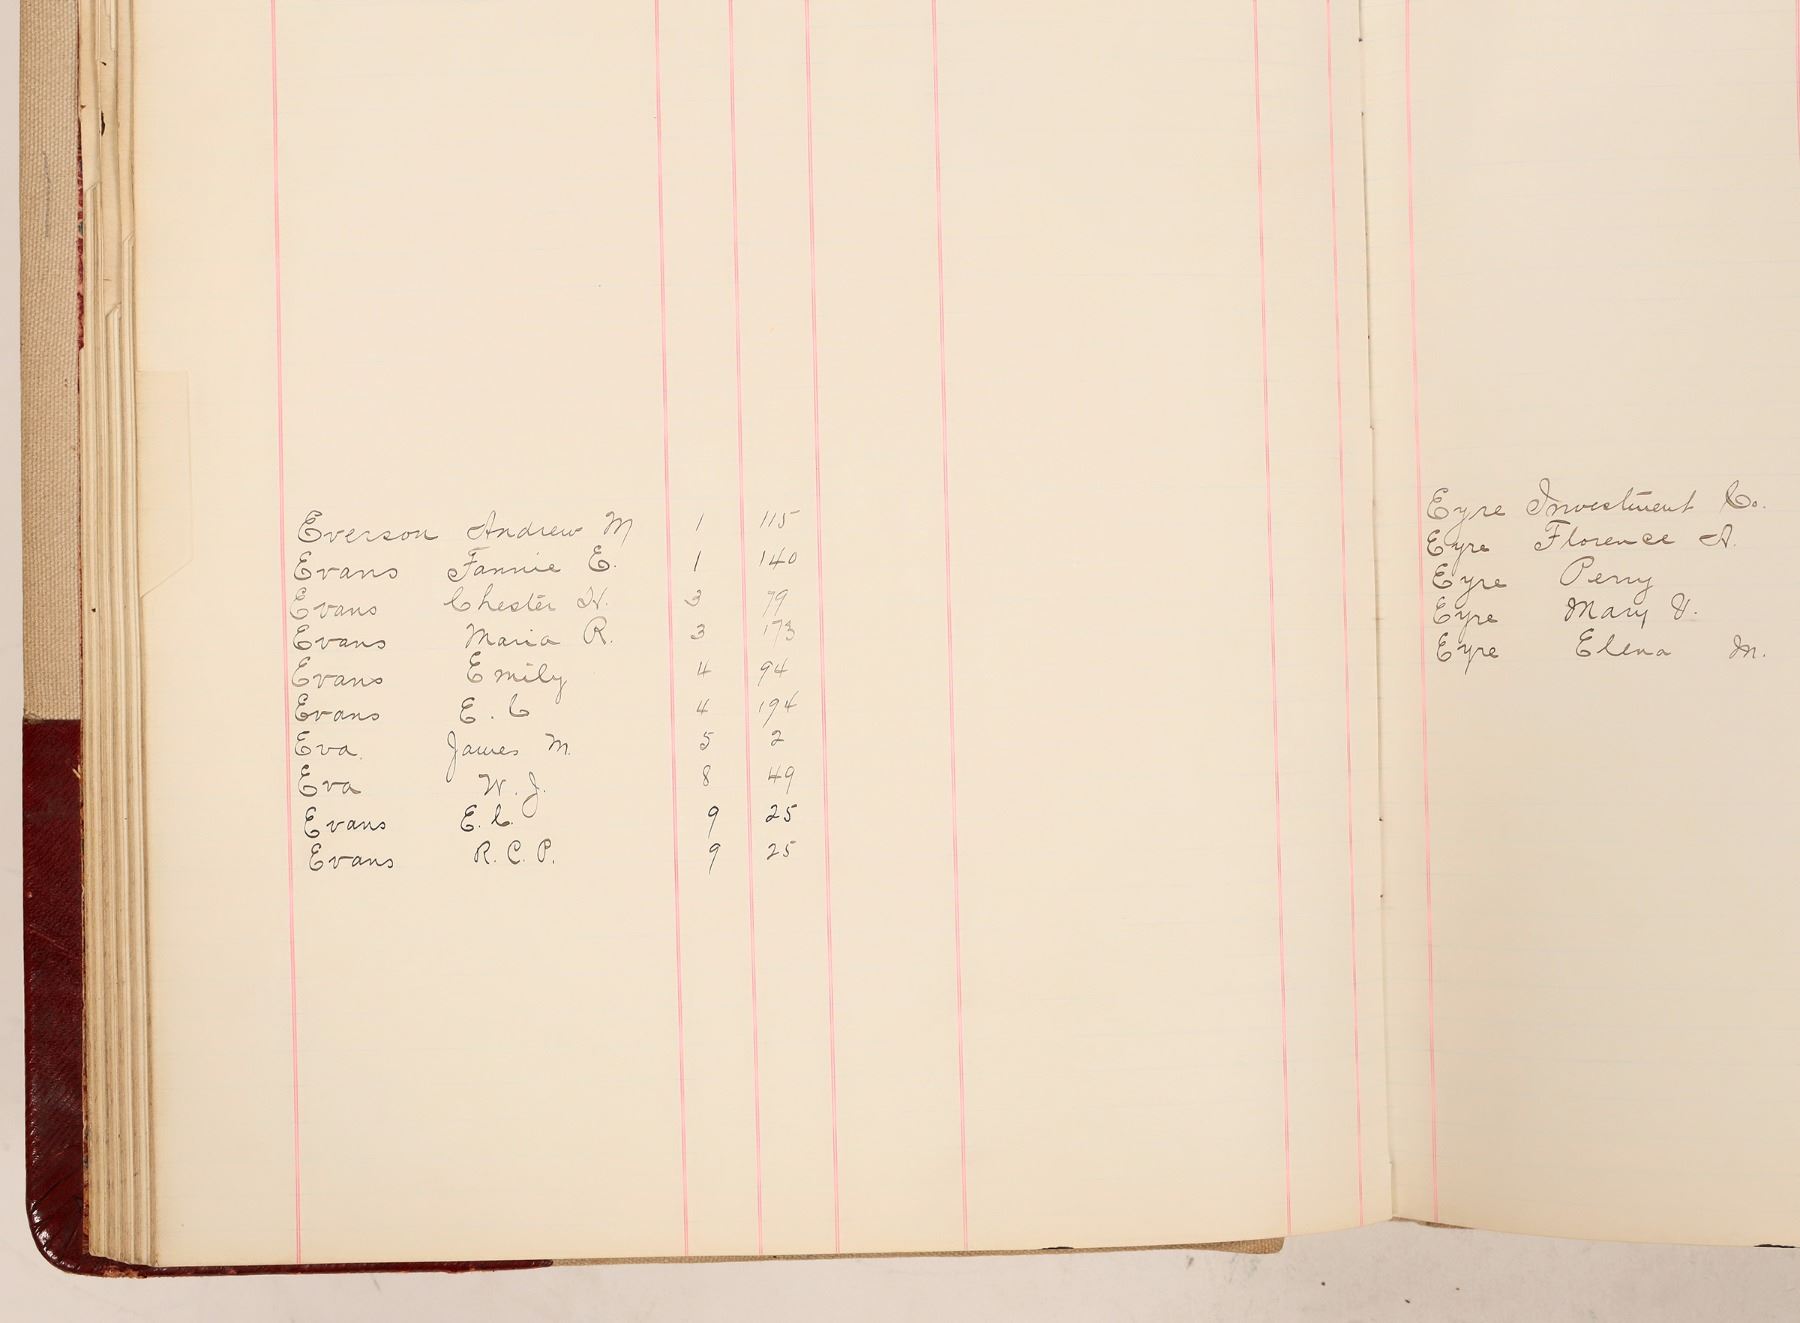 Everson Andrew M 1 115
Evans Fannie E. 1 140
Evans Chester H. 3 79
Evans Maria R. 3 173
Evans Emily 4 94
Evans E. C 4 194
Eva. James M. 5 2
Eva W. J. 8 49
Evans E. C. 9 25
Evans R. C. P. 9 25
Eyre Investment Co.
Eyre Florence A.
Eyre Perry
Eyre Mary V.
Eyre Elena M.